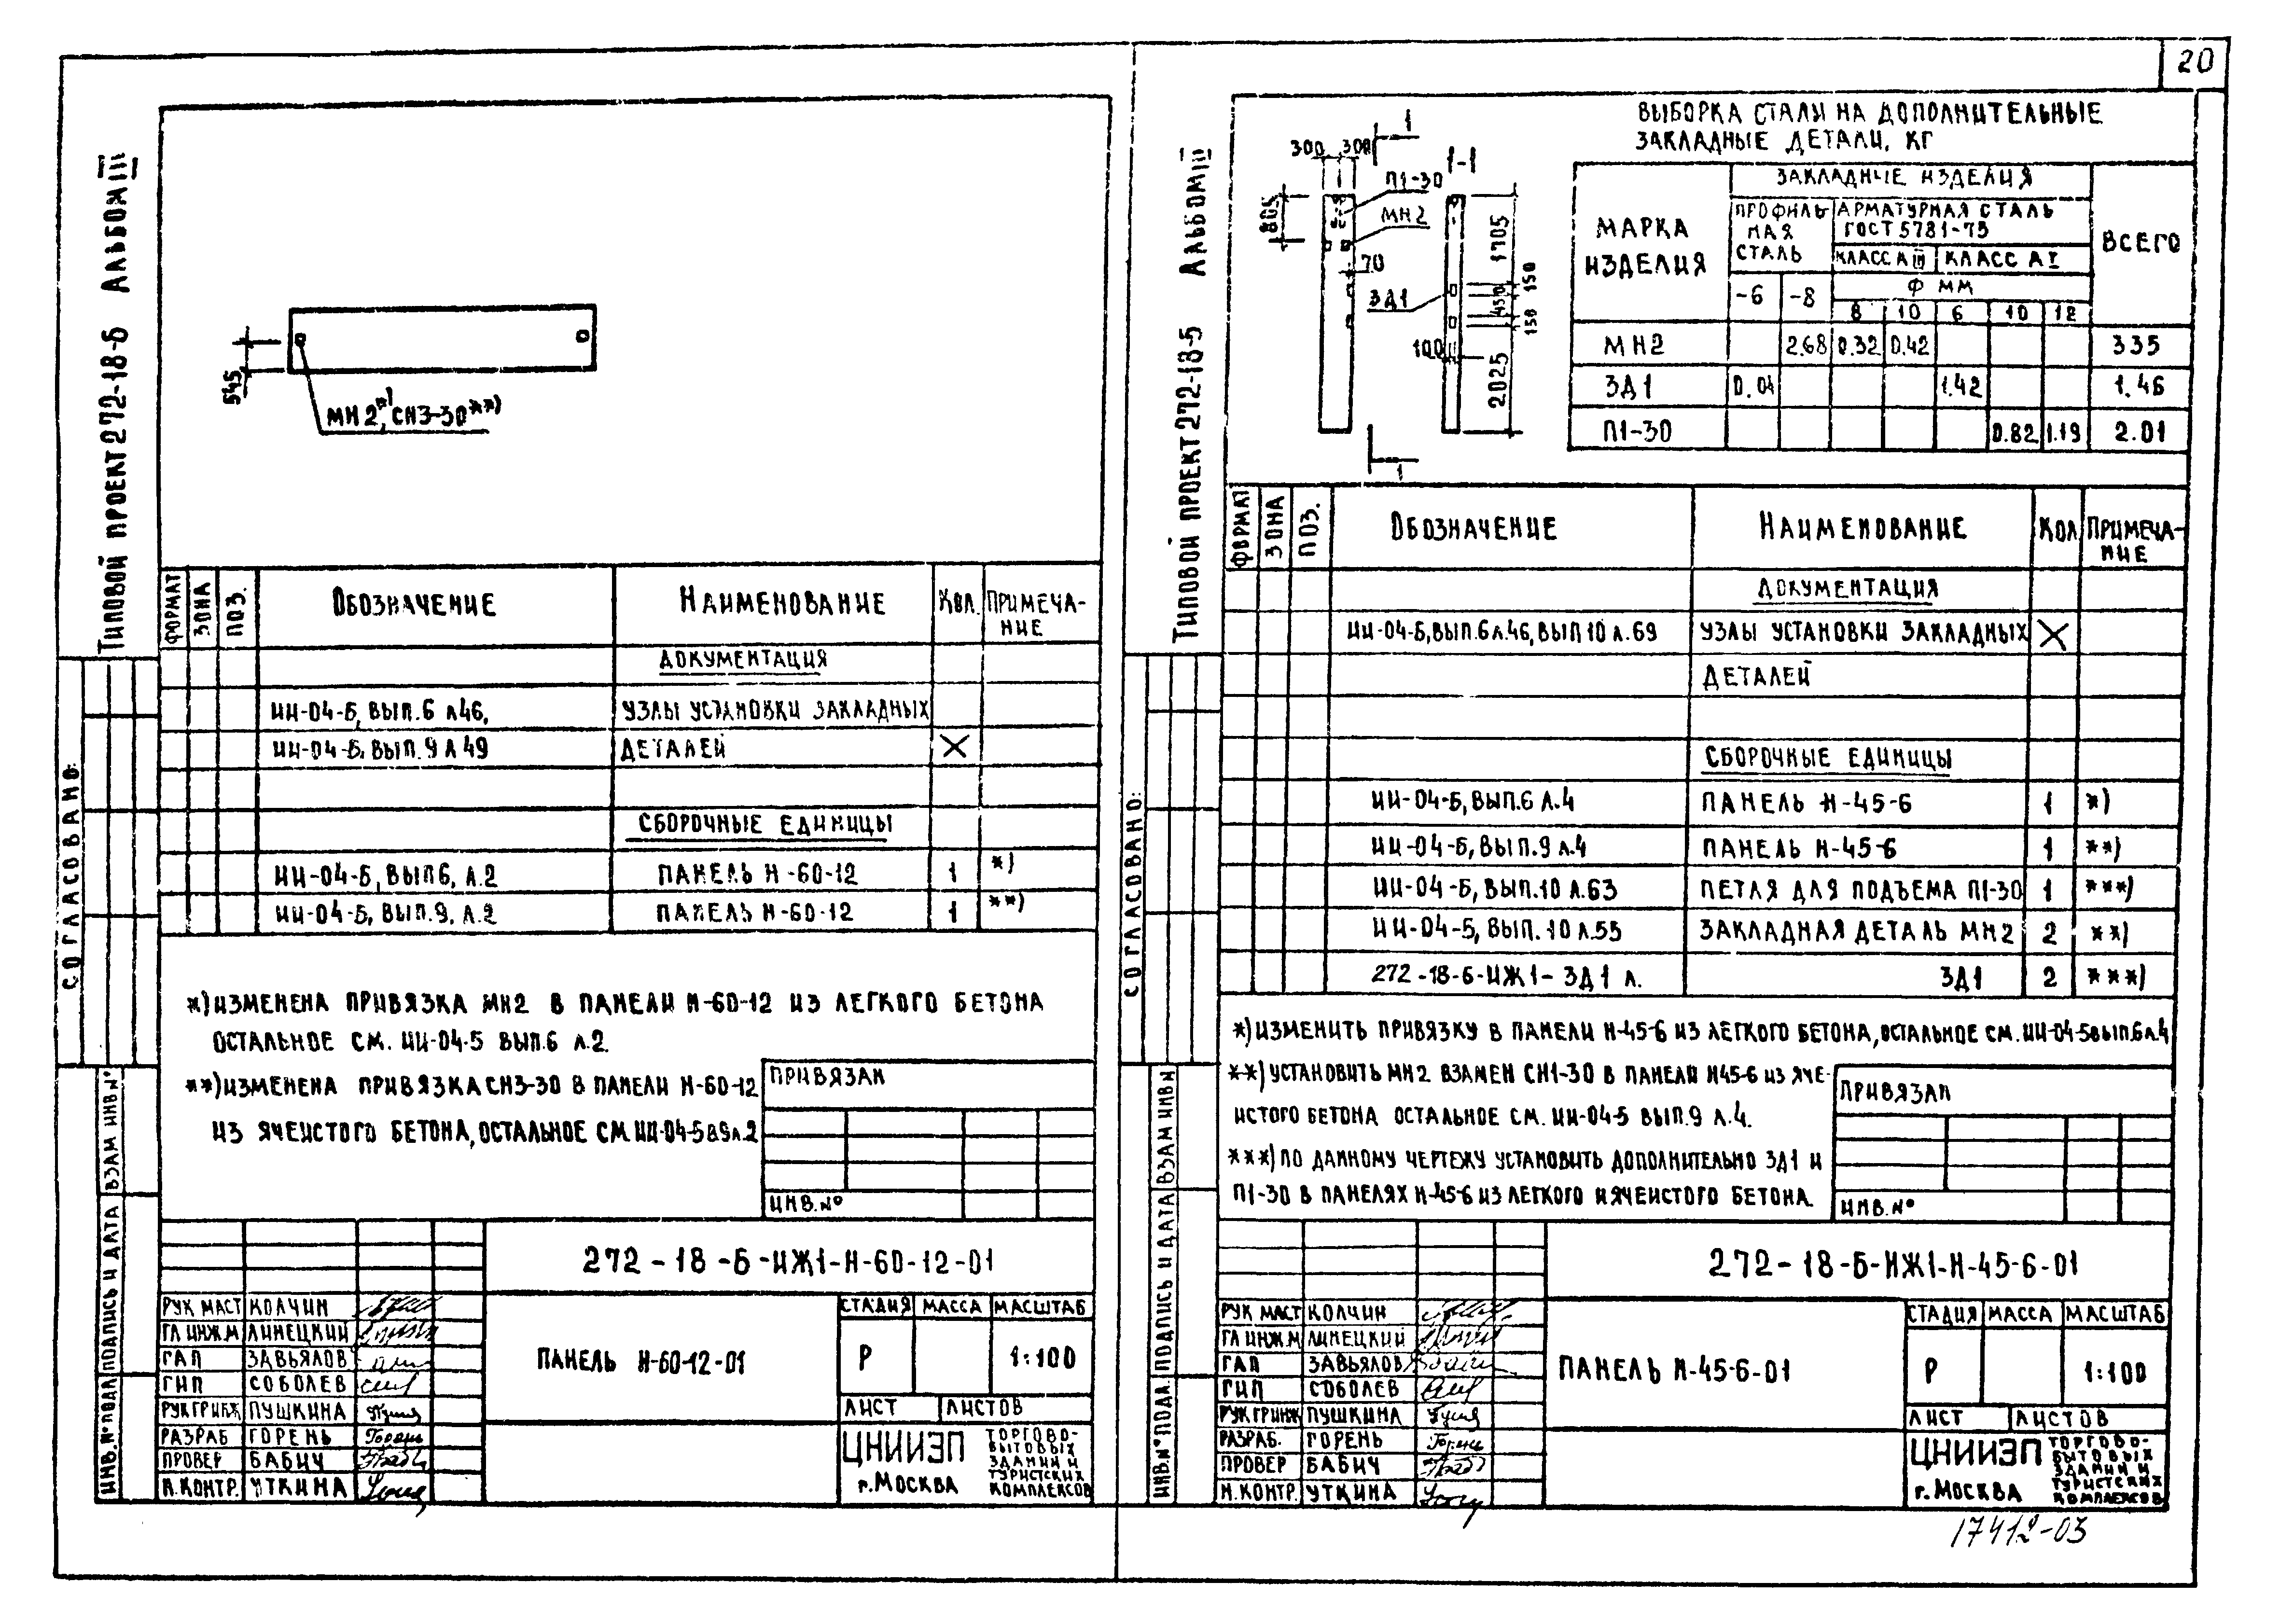 20
Типовой проект 272-18-5 Альбом III
545
МН2*), СН3-30**)
ФОРМАТ ЗОНА ПОЗ. ОБОЗНАЧЕНИЕ НАИМЕНОВАНИЕ Кол. ПРИМЕЧА-
НИЕ
ДОКУМЕНТАЦИЯ
ИИ-04-5, ВЫП.6 Л46, УЗЛЫ УСТАНОВКИ ЗАКЛАДНЫХ
ИИ-04-5, ВЫП. 9 Л 49 ДЕТАЛЕЙ X
СБОРОЧНЫЕ ЕДИНИЦЫ
ИИ-04-5, ВЫП6, Л.2 ПАНЕЛЬ Н-60-12 1 *)
ИИ-04-5, ВЫП.9, Л.2 ПАНЕЛЬ Н-60-12 1 **)
*) ИЗМЕНЕНА ПРИВЯЗКА МН2 В ПАНЕЛИ Н-60-12 ИЗ ЛЕГКОГО БЕТОНА
ОСТАЛЬНОЕ СМ. ИИ-04-5 ВЫП.6 Л.2.
**) ИЗМЕНЕНА ПРИВЯЗКА СН3-30 В ПАНЕЛИ Н-60-12
ИЗ ЯЧЕИСТОГО БЕТОНА, ОСТАЛЬНОЕ СМ. ИИ-04-5 В9 Л.2
ПРИВЯЗАН
ИНВ.№
СОГЛАСОВАНО:
ИНВ.№ ПОДЛ ПОДПИСЬ И ДАТА ВЗАМ ИНВ №
272-18-5-ИЖ1-Н-60-12-01
РУК МАСТ КОЛЧИН
ГЛ ИНЖ.М ЛИНЕЦКИЙ
ГАП ЗАВЬЯЛОВ
ГИП СОБОЛЕВ
РУК ГР ИНЖ ПУШКИНА
РАЗРАБ ГОРЕНЬ
ПРОВЕР БАБИЧ
Н.КОНТР. УТКИНА
ПАНЕЛЬ Н-60-12-01
СТАДИЯ МАССА МАСШТАБ
Р 1:100
ЛИСТ ЛИСТОВ
ЦНИИЭП
г. МОСКВА
ТОРГОВО-
БЫТОВЫХ
ЗДАНИЙ И
ТУРИСТСКИХ
КОМПЛЕКСОВ
Типовой проект 272-18-5 Альбом III
300 300 1
1-1
П1-30
МН2
805
70
ЗД1
100
1705
150
450
150
2025
1
ВЫБОРКА СТАЛИ НА ДОПОЛНИТЕЛЬНЫЕ
ЗАКЛАДНЫЕ ДЕТАЛИ, КГ
МАРКА
ИЗДЕЛИЯ
ЗАКЛАДНЫЕ ИЗДЕЛИЯ
ВСЕГО
ПРОФИЛЬ-
НАЯ
СТАЛЬ
АРМАТУРНАЯ СТАЛЬ
ГОСТ 5781-75
КЛАСС А III КЛАСС А I
Ф ММ
-6 -8 8 10 6 10 12
МН2 2.68 0.32 0.42 335
ЗД1 0.04 1.42 1.46
П1-30 0.82 1.19 2.01
ФОРМАТ ЗОНА ПОЗ. ОБОЗНАЧЕНИЕ НАИМЕНОВАНИЕ КОЛ ПРИМЕЧА-
НИЕ
ДОКУМЕНТАЦИЯ
ИИ-04-5, ВЫП. 6 Л.46, ВЫП 10 Л.69 УЗЛЫ УСТАНОВКИ ЗАКЛАДНЫХ X
ДЕТАЛЕЙ
СБОРОЧНЫЕ ЕДИНИЦЫ
ИИ-04-5, ВЫП.6 Л.4 ПАНЕЛЬ Н-45-6 1 *)
ИИ-04-5, ВЫП.9 Л.4 ПАНЕЛЬ Н-45-6 1 **)
ИИ-04-5, ВЫП.10 Л.63 ПЕТЛЯ ДЛЯ ПОДЪЕМА П1-30 1 ***)
ИИ-04-5, ВЫП. 10 Л.55 ЗАКЛАДНАЯ ДЕТАЛЬ МН2 2 **)
272-18-5-ИЖ1-ЗД1 Л. ЗД1 2 ***)
*) ИЗМЕНИТЬ ПРИВЯЗКУ В ПАНЕЛИ Н-45-6 ИЗ ЛЕГКОГО БЕТОНА, ОСТАЛЬНОЕ СМ. ИИ-04-5 ВЫП.6 Л.4
**) УСТАНОВИТЬ МН2 ВЗАМЕН СН1-30 В ПАНЕЛИ Н45-6 ИЗ ЯЧЕ-
ИСТОГО БЕТОНА ОСТАЛЬНОЕ СМ. ИИ-04-5 ВЫП.9 Л.4.
***) ПО ДАННОМУ ЧЕРТЕЖУ УСТАНОВИТЬ ДОПОЛНИТЕЛЬНО ЗД1 И
П1-30 В ПАНЕЛЯХ Н-45-6 ИЗ ЛЕГКОГО И ЯЧЕИСТОГО БЕТОНА.
ПРИВЯЗАН
ИНВ.№
СОГЛАСОВАНО:
ИНВ.№ ПОДЛ. ПОДПИСЬ И ДАТА ВЗАМ ИНВ №
272-18-5-ИЖ1-Н-45-6-01
РУК МАСТ КОЛЧИН
ГЛ ИНЖ М ЛИНЕЦКИЙ
ГАП ЗАВЬЯЛОВ
ГИП СОБОЛЕВ
РУК ГР ИНЖ ПУШКИНА
РАЗРАБ. ГОРЕНЬ
ПРОВЕР БАБИЧ
Н.КОНТР. УТКИНА
ПАНЕЛЬ Н-45-6-01
СТАДИЯ МАССА МАСШТАБ
Р 1:100
ЛИСТ ЛИСТОВ
ЦНИИЭП
г. МОСКВА
ТОРГОВО-
БЫТОВЫХ
ЗДАНИЙ И
ТУРИСТСКИХ
КОМПЛЕКСОВ
17412-03